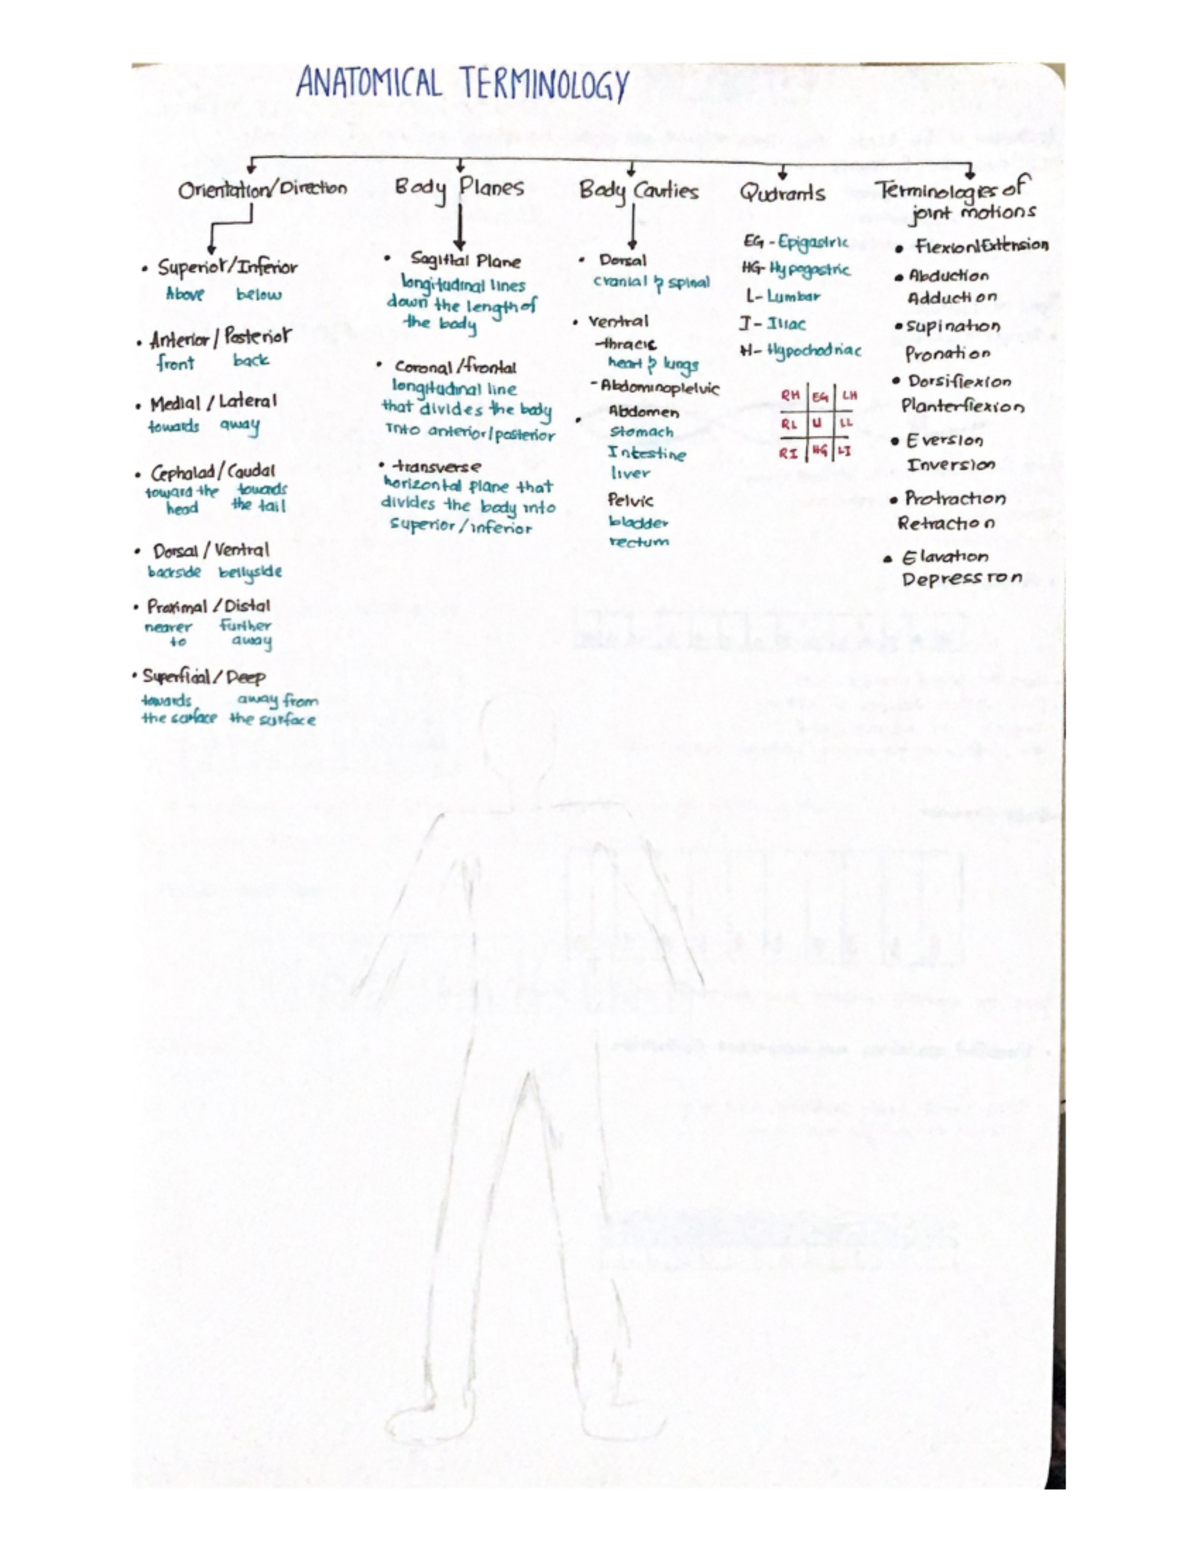 ANATOMICAL TERMINOLOGY
Orientation/Direction
• Superior/Inferior
Above below
• Anterior/Posterior
front back
• Medial/Lateral
towards away
• Cephalad/Caudal
toward the towards
head the tail
• Dorsal/Ventral
backside bellyside
• Proximal/Distal
nearer further
to away
• Superficial/Deep
towards away from
the surface the surface
Body Planes
• Sagittal Plane
longitudinal lines
down the length of
the body
• Coronal/frontal
longitudinal line
that divides the body
into anterior/posterior
• transverse
horizontal plane that
divides the body into
superior/inferior
Body Cavities
• Dorsal
cranial & spinal
• ventral
-thracic
heart & lungs
- Abdominoplelvic
• Abdomen
stomach
Intestine
liver
Pelvic
bladder
rectum
Qudrants
EG - Epigastric
HG- Hypogastric
L- Lumbar
I- Illac
H- Hypochodriac
RH EG LH
RL U LL
RI HG LI
Terminologies of
joint motions
• Flexion/Extension
• Abduction
Adduction
• Supination
Pronation
• Dorsiflexion
Planterflexion
• Eversion
Inversion
• Protraction
Retraction
• Elavation
Depression